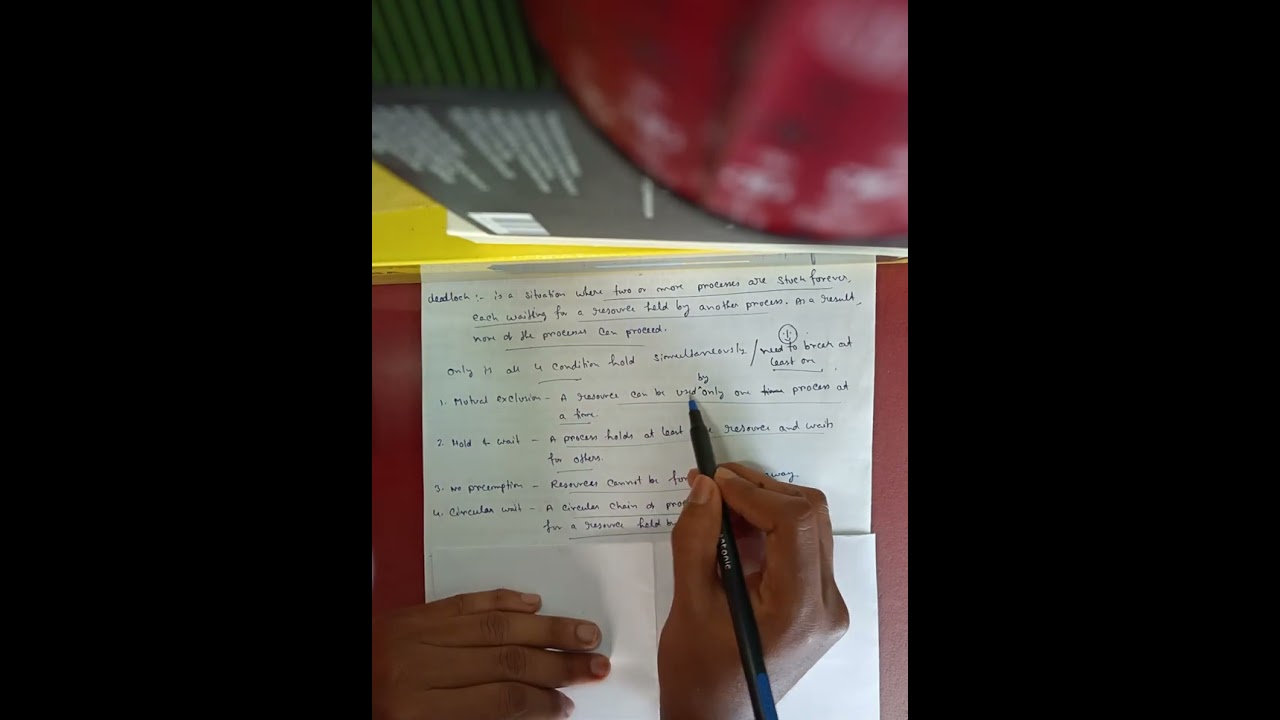 deadlock :- is a situation where two or more processes are stuck forever,
each waitting for a resource held by another process. As a result,
none of the processes can proceed.
Only is all 4 condition hold simultaneously / need to break at
least on
by
1. Mutual exclusion - A resource can be used ^ only one time process at
a time.
2. Hold & wait - A process holds at least resource and waits
for others.
3. No preemption - Resources cannot be away
4. Circular wait - A circular chain of
for a resource held